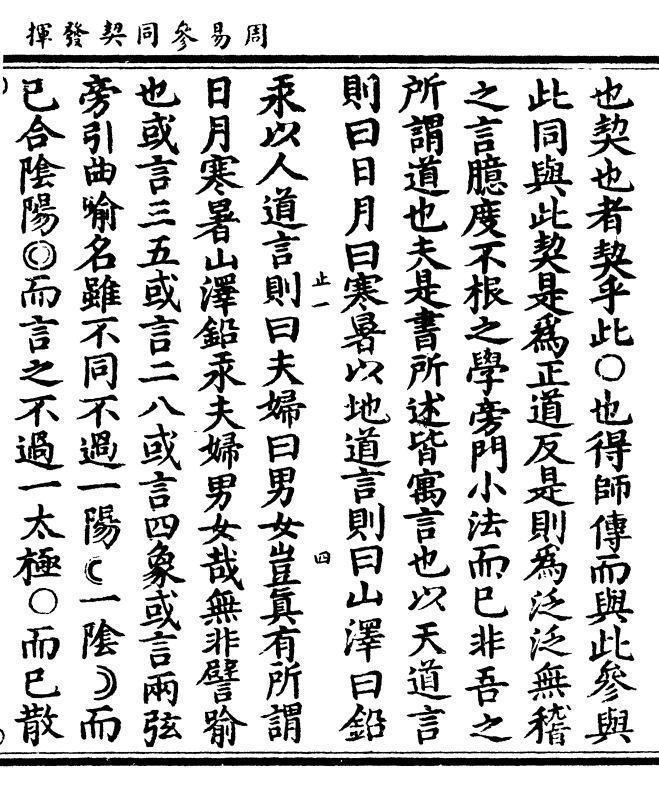 周易參同契發揮
也契也者契乎此○也得師傳而與此參與
此同與此契是爲正道反是則爲泛泛無稽
之言臆度不根之學旁門小法而已非吾之
所謂道也夫是書所述皆寓言也以天道言
則曰日月曰寒暑以地道言則曰山澤曰鉛
止一
四
汞以人道言則曰夫婦曰男女豈眞有所謂
日月寒暑山澤鉛汞夫婦男女哉無非譬喻
也或言三五或言二八或言四象或言兩弦
旁引曲喻名雖不同不過一陽☾一陰☽而
已合陰陽◎而言之不過一太極○而已散